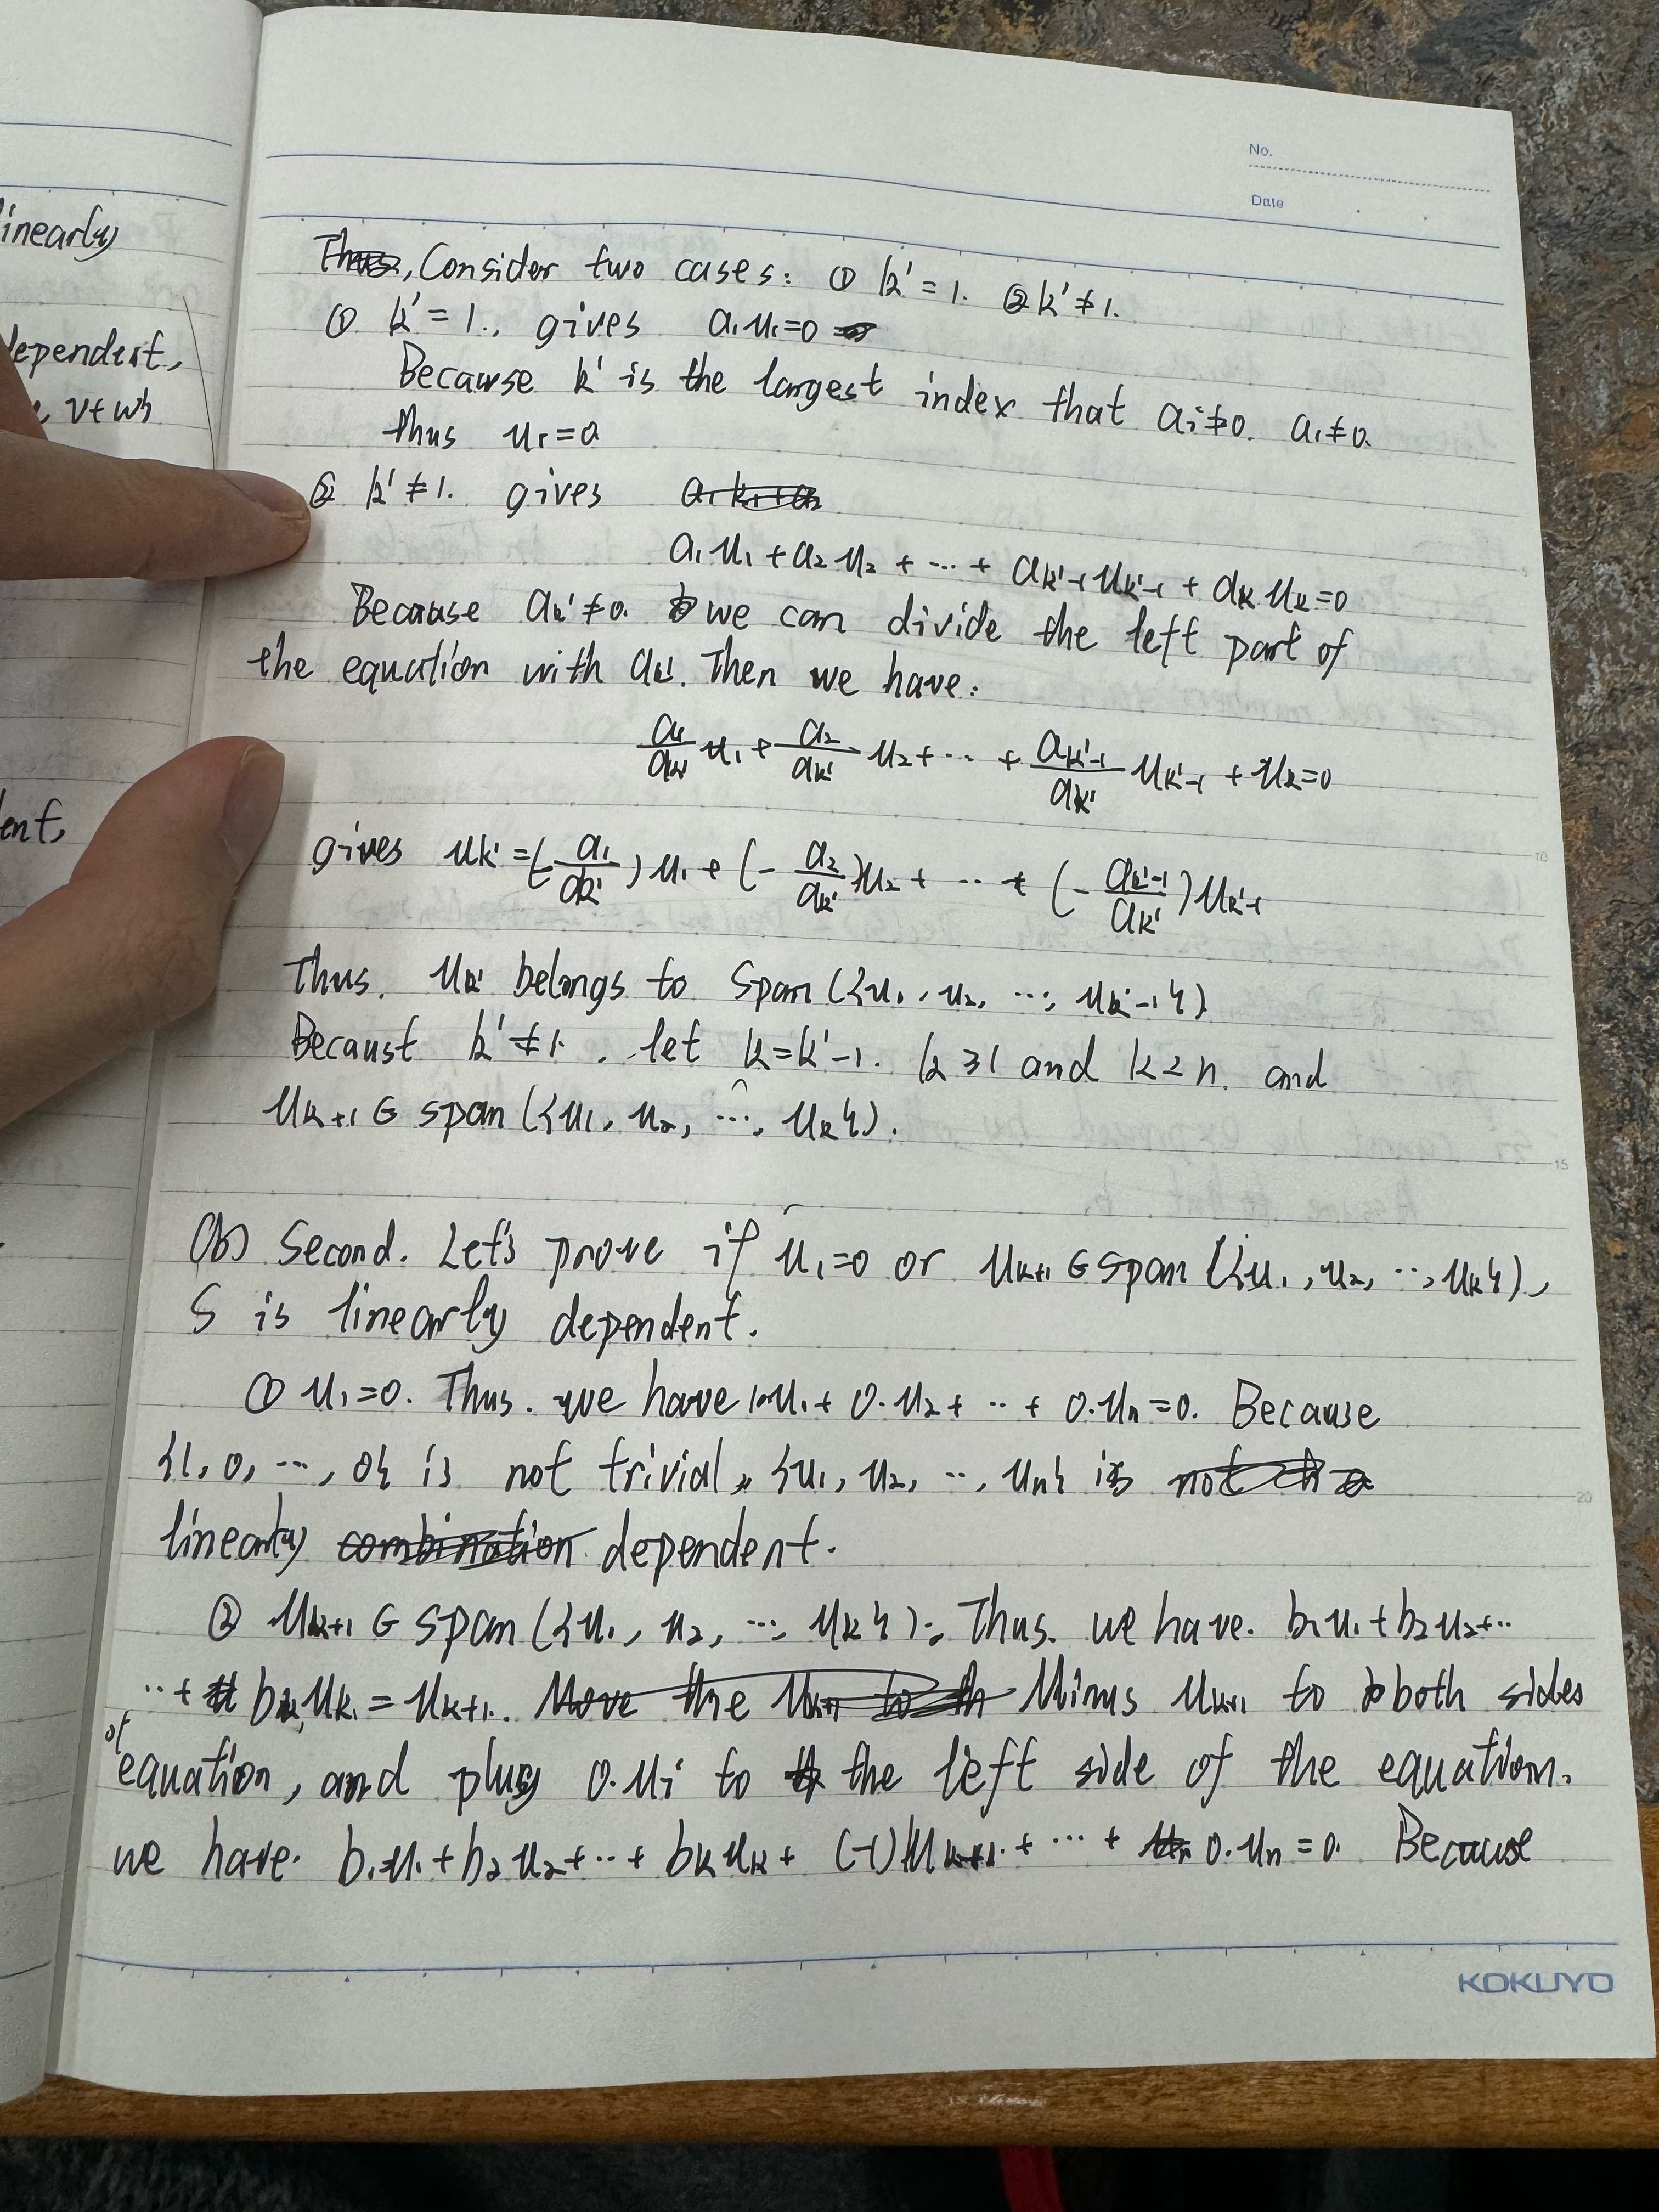 No.
Date
inearly
dependent,
v+w}
ent,
Consider two cases: ① k'=1. ② k'≠1.
① k'=1., gives a₁u₁=0
Because k' is the largest index that aᵢ≠0. a₁≠0.
thus u₁=0
② k'≠1. gives
a₁u₁+a₂u₂+⋯+aₖ'₋₁uₖ'₋₁+aₖuₖ=0
Because aₖ'≠0. we can divide the left part of
the equation with aₖ'. Then we have:
a₁/aₖ' u₁ + a₂/aₖ' u₂ + ⋯ + aₖ'₋₁/aₖ' uₖ'₋₁ + uₖ=0
gives uₖ' = (-a₁/aₖ')u₁ + (-a₂/aₖ')u₂ + ⋯ + (-aₖ'₋₁/aₖ')uₖ'₋₁
10
Thus. uₖ' belongs to Span({u₁, u₂, ⋯, uₖ'₋₁})
Becaust k'≠1. let k=k'-1. k≥1 and k<n. and
uₖ₊₁ ∈ span({u₁, u₂, ⋯, uₖ}).
15
(b) Second. Let's prove if u₁=0 or uₖ₊₁ ∈ span({u₁, u₂, ⋯, uₖ}),
S is linearly dependent.
① u₁=0. Thus. we have 1·u₁+0·u₂+⋯+0·uₙ=0. Because
{1, 0, ⋯, 0} is not trivial, {u₁, u₂, ⋯, uₙ} is
20
linearly dependent.
② uₖ₊₁ ∈ span({u₁, u₂, ⋯, uₖ}). Thus. we have. b₁u₁+b₂u₂+⋯
⋯+bₖuₖ=uₖ₊₁. Minus uₖ₊₁ to both sides
of equation, and plug 0·uᵢ to the left side of the equation.
we have. b₁u₁+b₂u₂+⋯+bₖuₖ+(-1)uₖ₊₁+⋯+0·uₙ=0. Because
KOKUYO